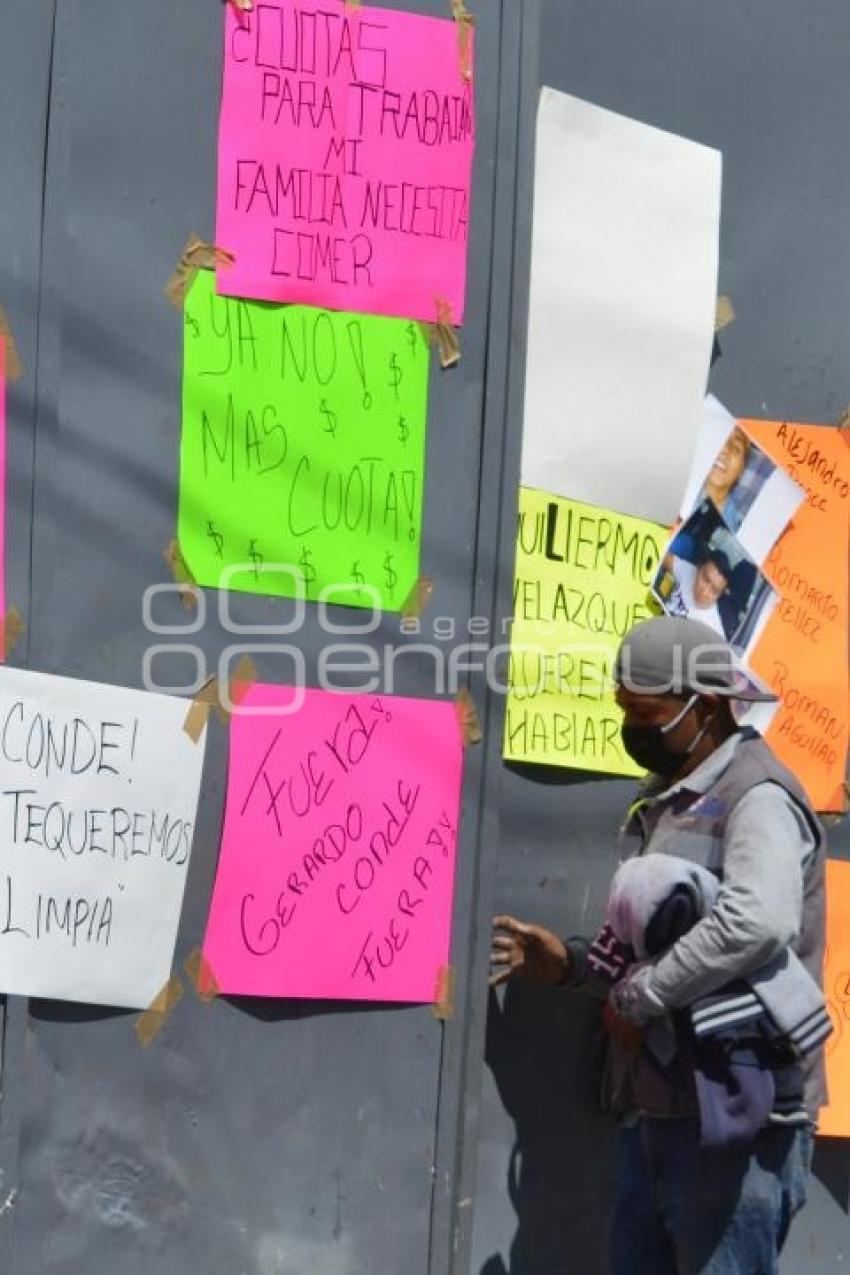 ¿CUOTAS
PARA TRABAJAR
MI
FAMILIA NECESITA
COMER
YA NO!
MAS
CUOTA!
$ $ $ $ $ $ $ $ $ $
CONDE!
TEQUEREMOS
LIMPIA"
FUERA!
GERARDO
CONDE
FUERA!!
UILIERMO
VELAZQUE
UIEREN
HABIAR
Alejandro
Romario
TELLEZ
ROMAN
AGUILAR
agencia
enfoque